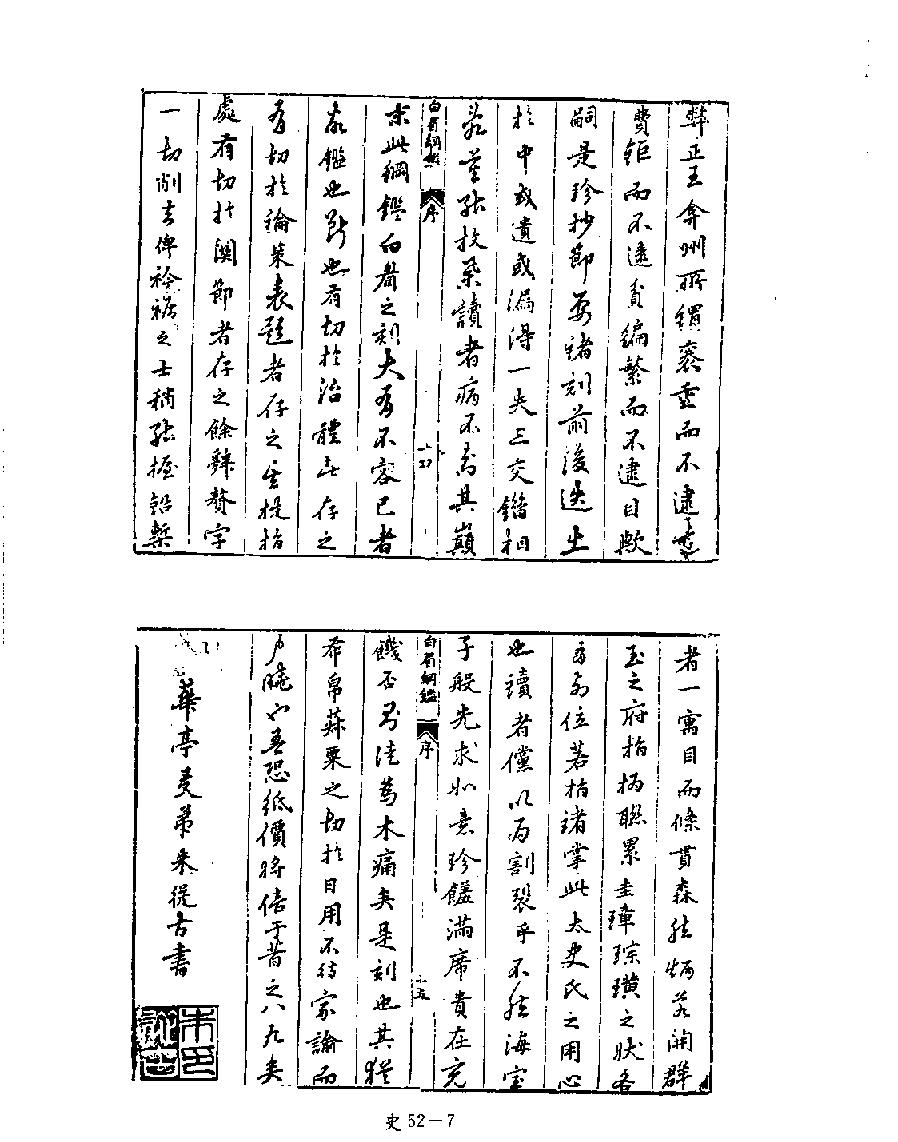 弊正王弇州所謂裘重而不逮
費鉅而不逮貧編繁而不逮目歟
嗣是珍抄節要諸刻前後迭出
於中或遺或漏得一失三交錯相
若業強投梁讀者病不
求此綱鑑白眉之刻大有不容已者
鑑也斷也有切於治體者存之
有切於論策表題者存之至提指
處有切於關節者存之餘辭贅字
一切削去俾衿裾之士稍能握鉛槧
白眉綱鑑
序
十四
者一寓目而條貫森然炳若闢群
玉之府指柄聯累圭璋琮璜之狀各
有列位若指諸掌此太史氏之用心
也讀者儻以為割裂乎不然海室
子般先求如意珍饈滿席貴在充
饑否則佳蔦木痛矣是刻也其猶
布帛菽粟之切於日用不待余論而
戶曉也吾恐紙價將倍于昔之八九矣
華亭友弟朱從古書
白眉綱鑑
序
十五
史52－7